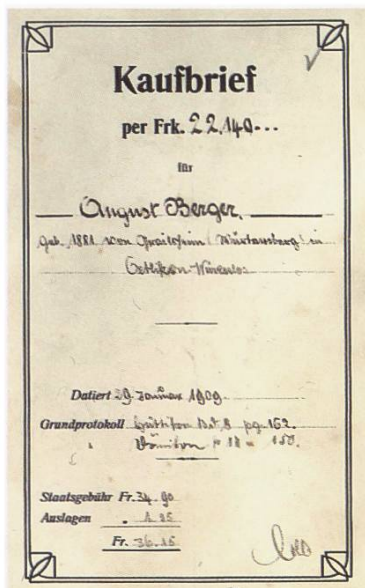 Kaufbrief
per Frk. 22,140.--
für
August Berger,
geb. 1881 von (Würtemberg) in
Oetlikon-Würenlos
Datiert 29. Januar 1909.
Grundprotokoll Hüttikon Bd. 8 pg. 162.
" Dänikon " 18 " 150.
Staatsgebühr Fr. 34.90
Auslagen " 1.25
Fr. 36.15